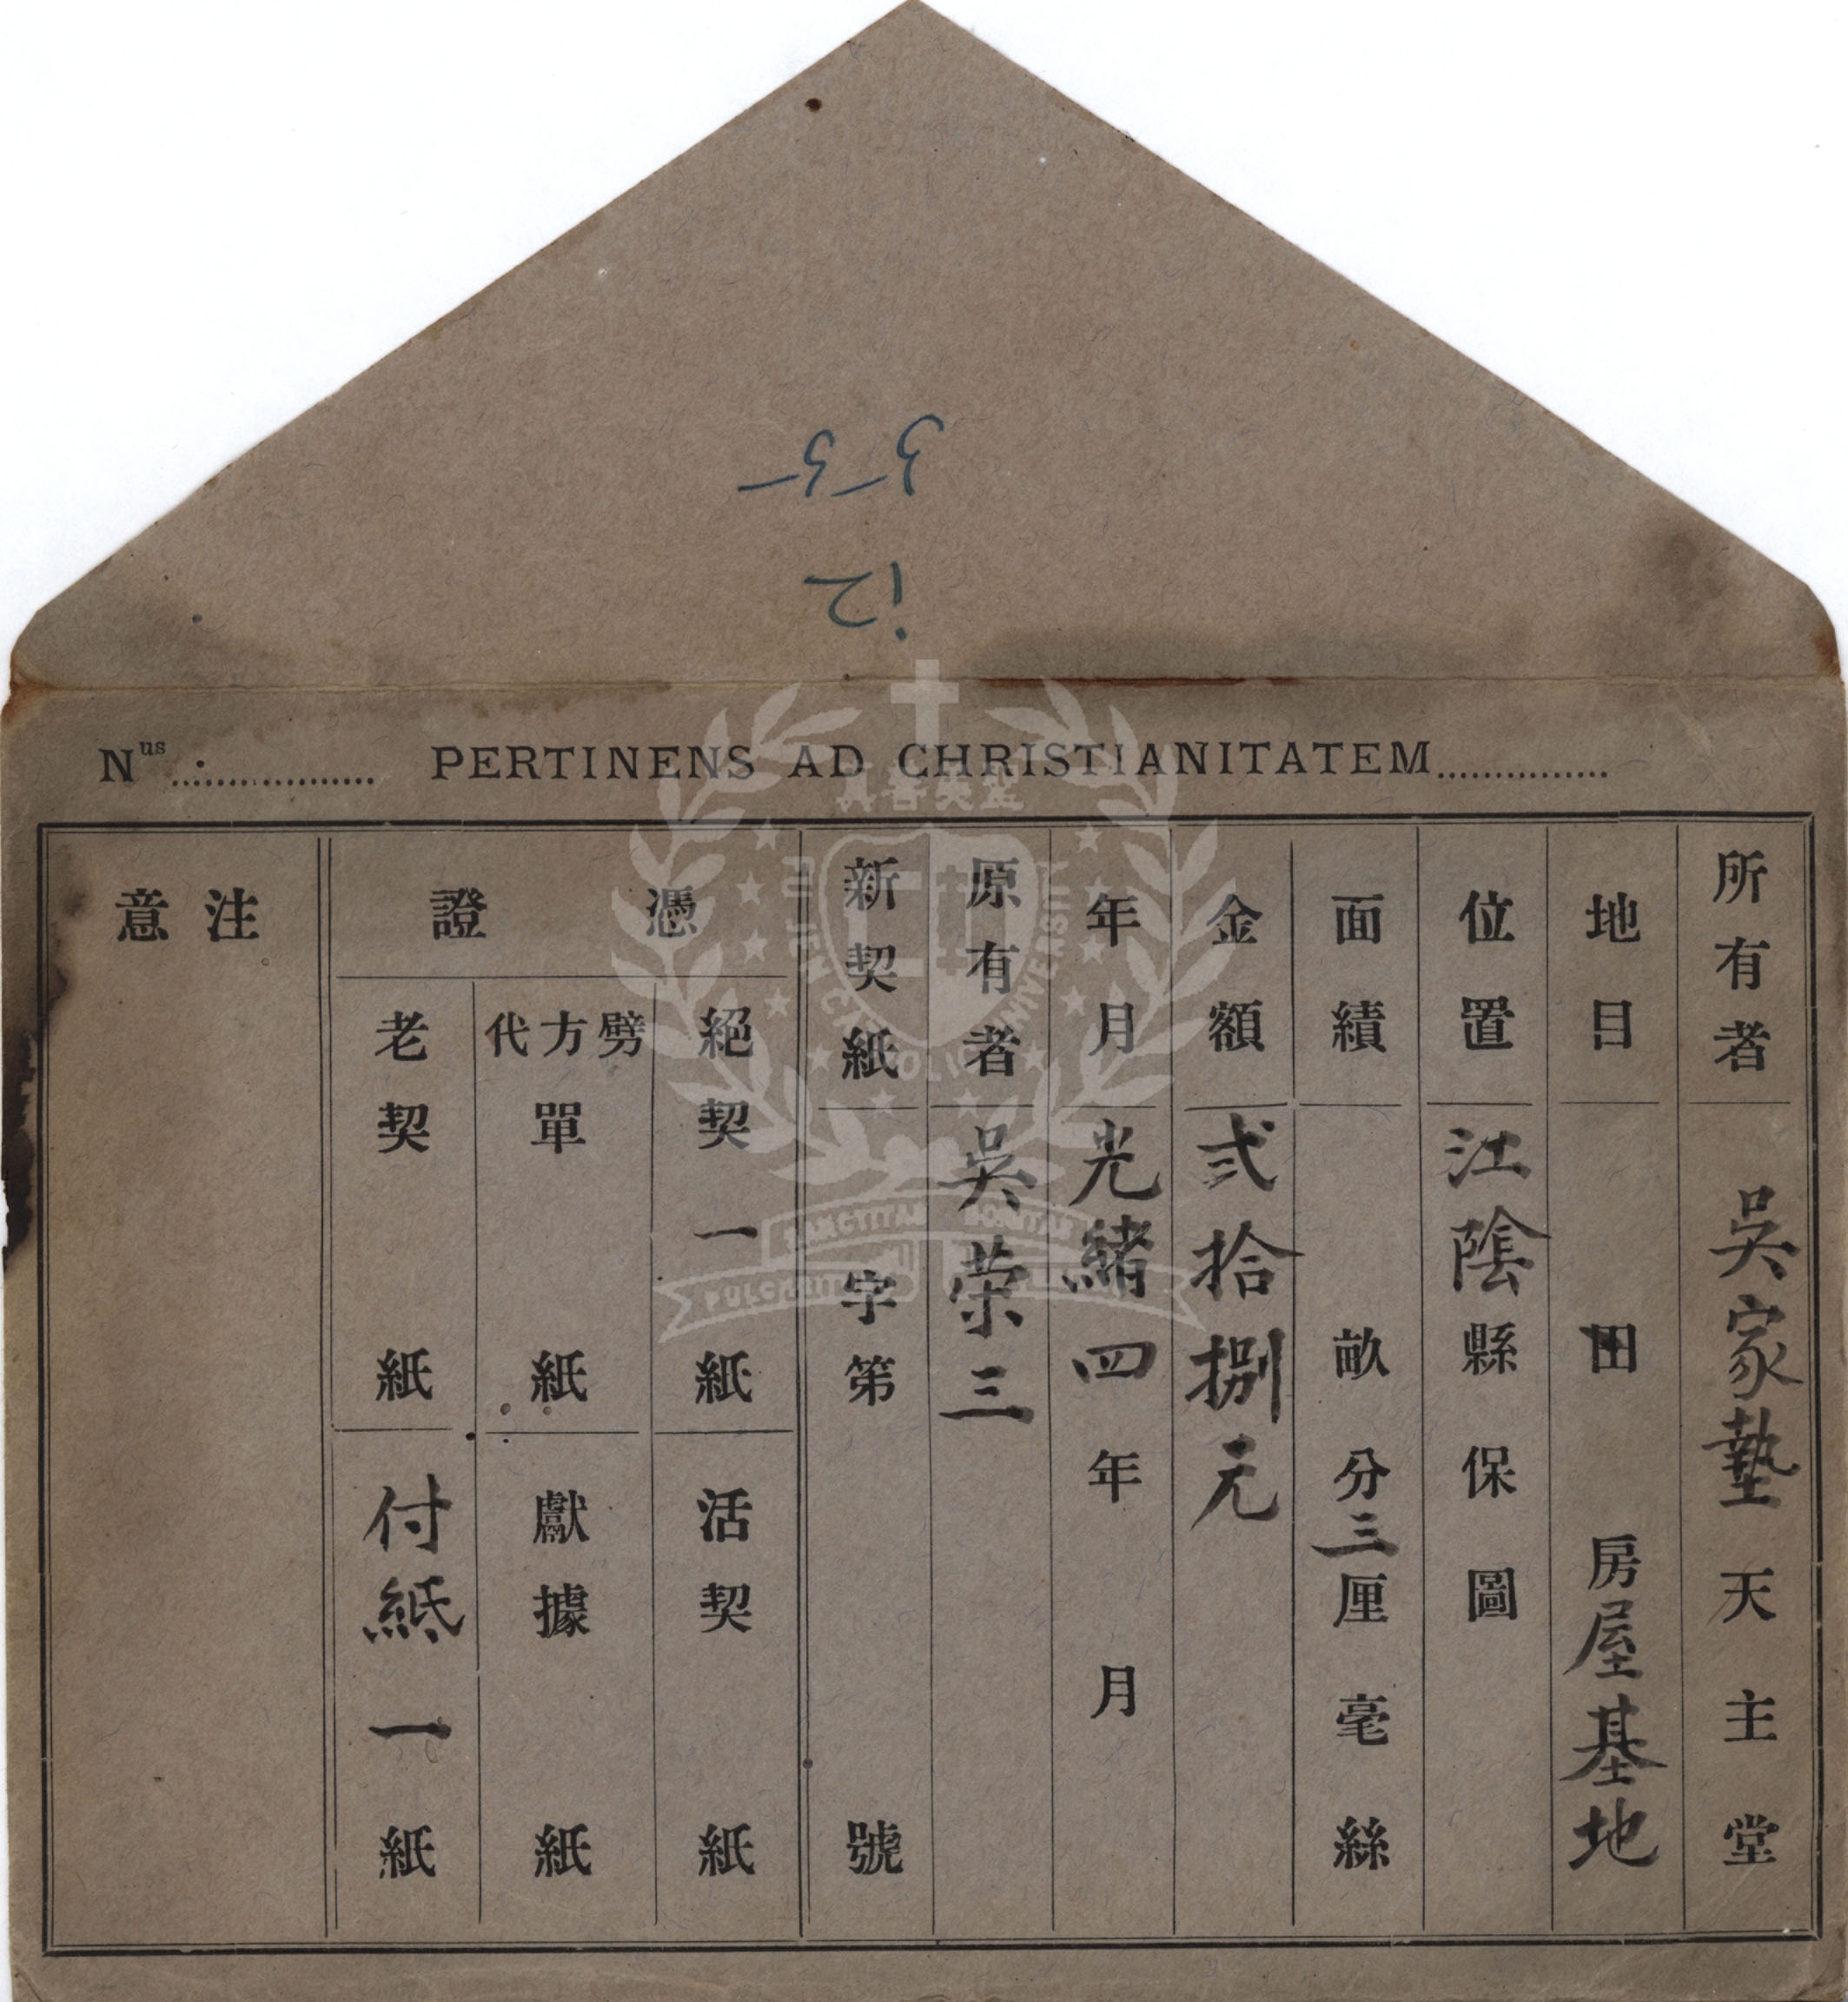 Nus PERTINENS AD CHRISTIANITATEM
所有者 吳家墊天主堂
地目 田 房屋基地
位置 江陰縣保圖
面績 畝分三厘毫絲
金額 弍拾捌元
年月 光緒四年月
原有者 吳荣三
新契紙 字第號
憑證
絕契一紙 活契紙
劈方代單紙 獻據紙
老契紙 付紙一紙
注意